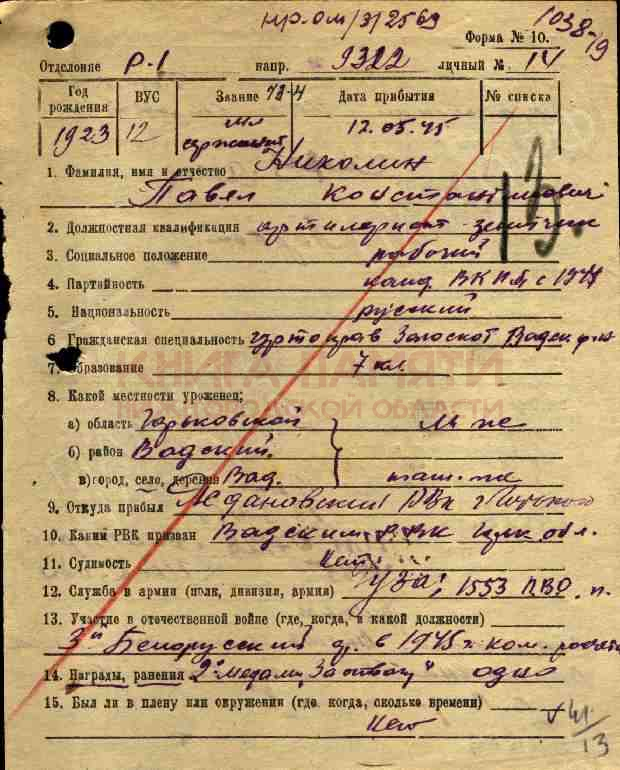 пр.ом/3/2569
1038-19
Форма № 10.
Отделение Р-1 напр. 9322 личный № 14
Год рождения ВУС Звание Дата прибытия № списка
1923 12 мл сержант 12.05.45
1. Фамилия, имя и отчество Николин
Павел Константинович
2. Должностная квалификация артилерист зенитчик
3. Социальное положение рабочий
4. Партийность канд ВКПб с 1944
5. Национальность русский
6 Гражданская специальность Заготскот Вадск
7. Образование 7 кл.
КНИГА ПАМЯТИ
НИЖЕГОРОДСКОЙ ОБЛАСТИ
8. Какой местности уроженец;
а) область Горьковской
б) район Вадский.
в) город, село, деревня Вад. там-же
9. Откуда прибыл Ждановский РВК г Горького
10. Каким РВК призван Вадским РВК обл.
11. Судимость нет
12. Служба в армии (полк, дивизия, армия) УЗА; 1553 ПВО. п.
13. Участие в отечественной войне (где, когда, в какой должности)
3й Белорусский ф. в 1945 г. ком. расчета
14. Награды, ранения 2е медали "За отвагу" одно
15. Был ли в плену или окружении (где, когда, сколько времени)
нет
41/13